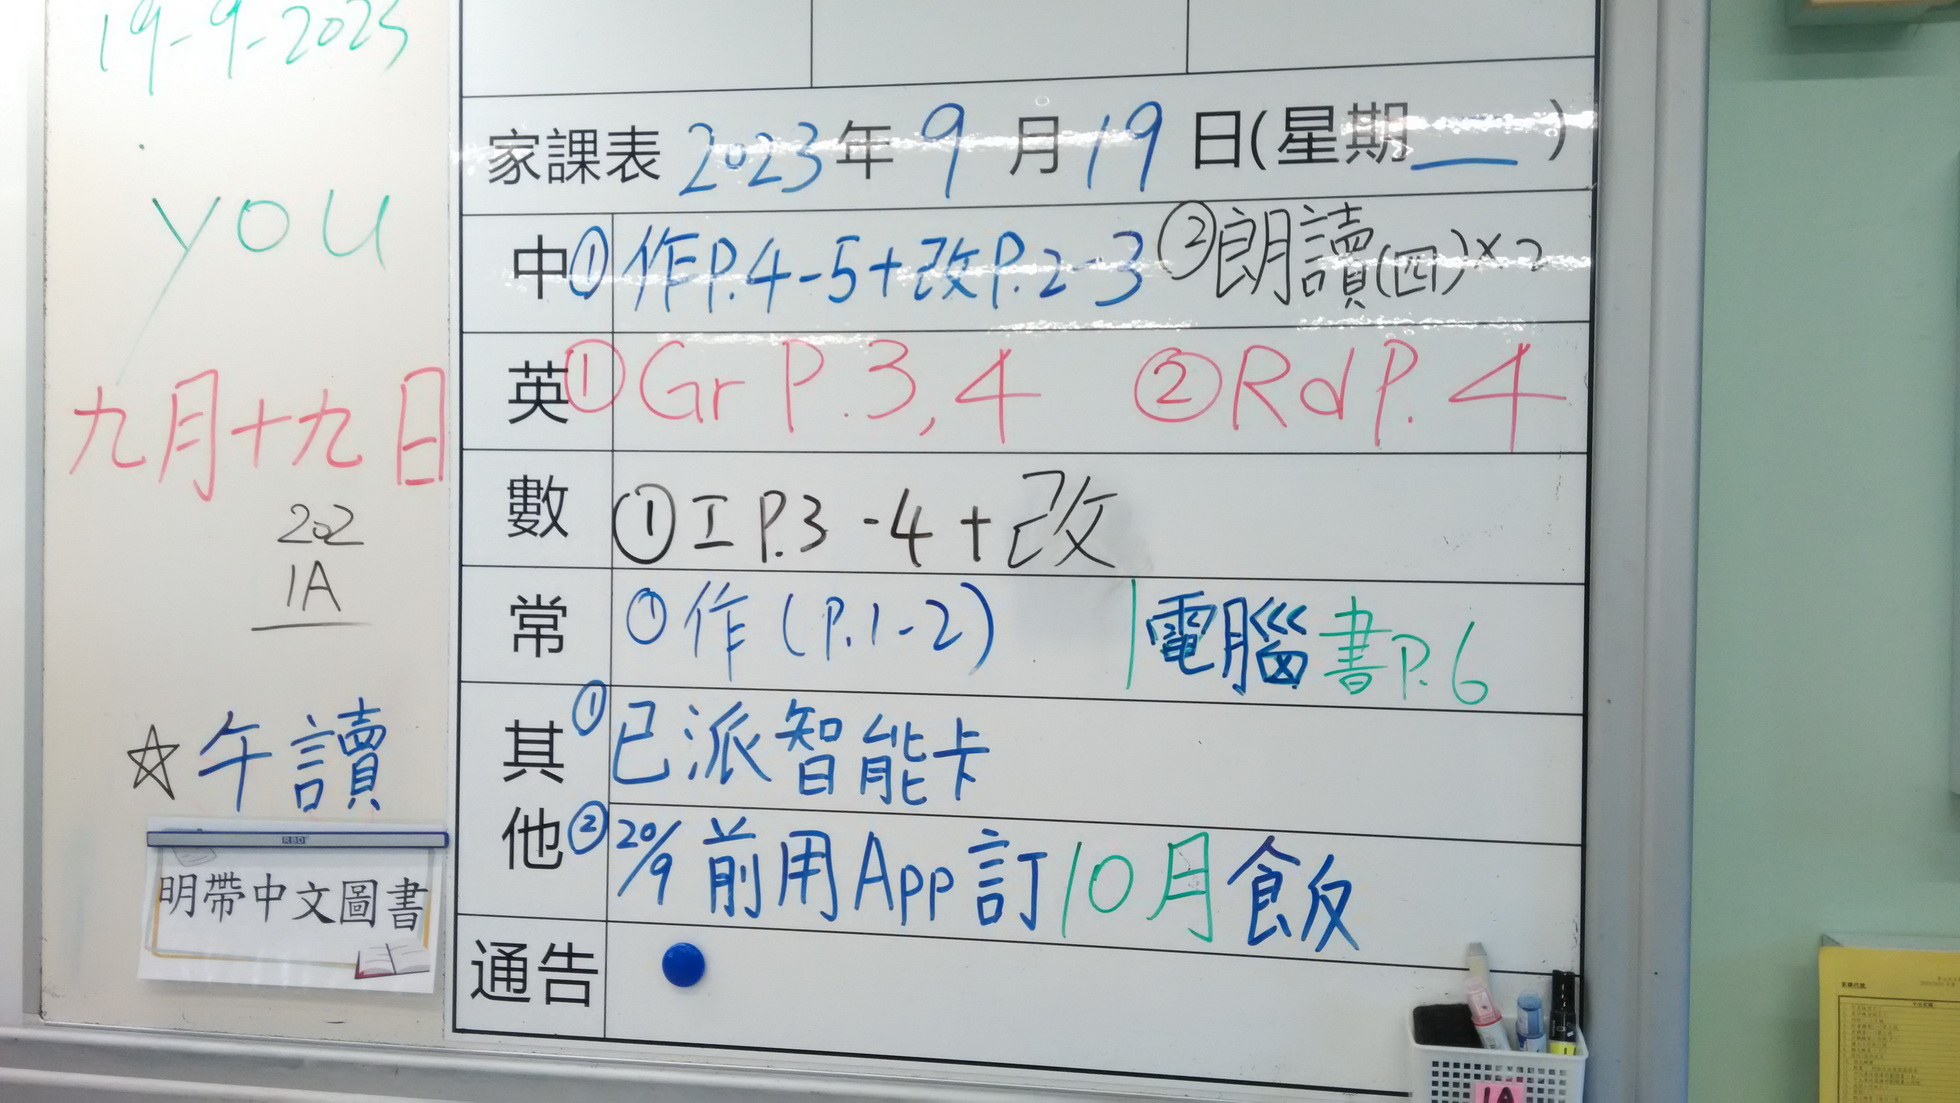 19-9-2023
you
九月十九日
202
1A
☆午讀
RBD
明帶中文圖書
家課表 2023年 9 月 19 日(星期二)
中 ① 作P.4-5+改P.2-3 ②朗讀(四)×2
英 ① Gr P.3,4 ② Rd P.4
數 ① 工 P.3-4+改
常 ① 作(P.1-2) | 電腦書P.6
其他 ① 已派智能卡
② 20/9 前用App訂10月飯
通告
1A